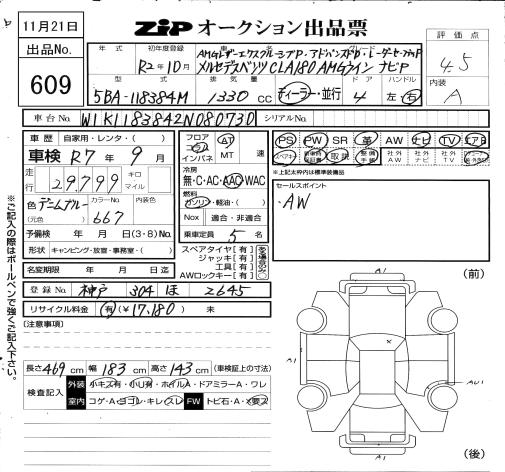 11月21日
ZIP オークション出品票
出品No.
609
年式 初年度登録 車名 グレード
R2年10月
AMGレザーエクスクルーシブP・アドバンスドP・レーダーセーフティP
メルセデスベンツ CLA180 AMGライン ナビP
評価点
4.5
内装
A
型式 排気量 ドア ハンドル
5BA-118384M 1330 cc ディーラー・並行 4 左・右
車台No. W1K1183842N080730 シリアルNo.
車歴 自家用・レンタ・( )
車検 R7年 9月
走行 29,799 キロ マイル
色 デニムブルー 667 内装色
(元色)
予備検 年 月 日(3・8)No.
形状 キャンピング・放宿・事務室・( )
名変期限 年 月 日迄
フロア コラム インパネ AT MT 速
冷房
無・C・AC・AAC・WAC
燃料
ガソリン・軽油・( )
Nox 適合・非適合
乗車定員 5 名
スペアタイヤ [ 有 ]
ジャッキ [ 有 ]
工具 [ 有 ]
AWロックキー [ 有 ]
ある場合のみ○
PS PW SR 革 AW ナビ TV エアB
スペアキー 取説 整備手帳 社外AW 社外ナビ 社外TV
*上記太枠内は標準装備品
セールスポイント
・AW
登録No. 神戸 304 ほ 2645
リサイクル料金 (有)(¥17,180) 未
[注意事項]
長さ 469 cm 幅 183 cm 高さ 143 cm (車検証上の寸法)
検査記入 外装 小キズ有・小U有・ホイルA・ドアミラーA・ワレ
室内 コゲ・A・ヨゴレ・キレ・スレ FW トビ石・A・X要ス
※ご記入の際はボールペンで強くご記入下さい。
(前)
A1
A1
x
AU1
A1
(後)